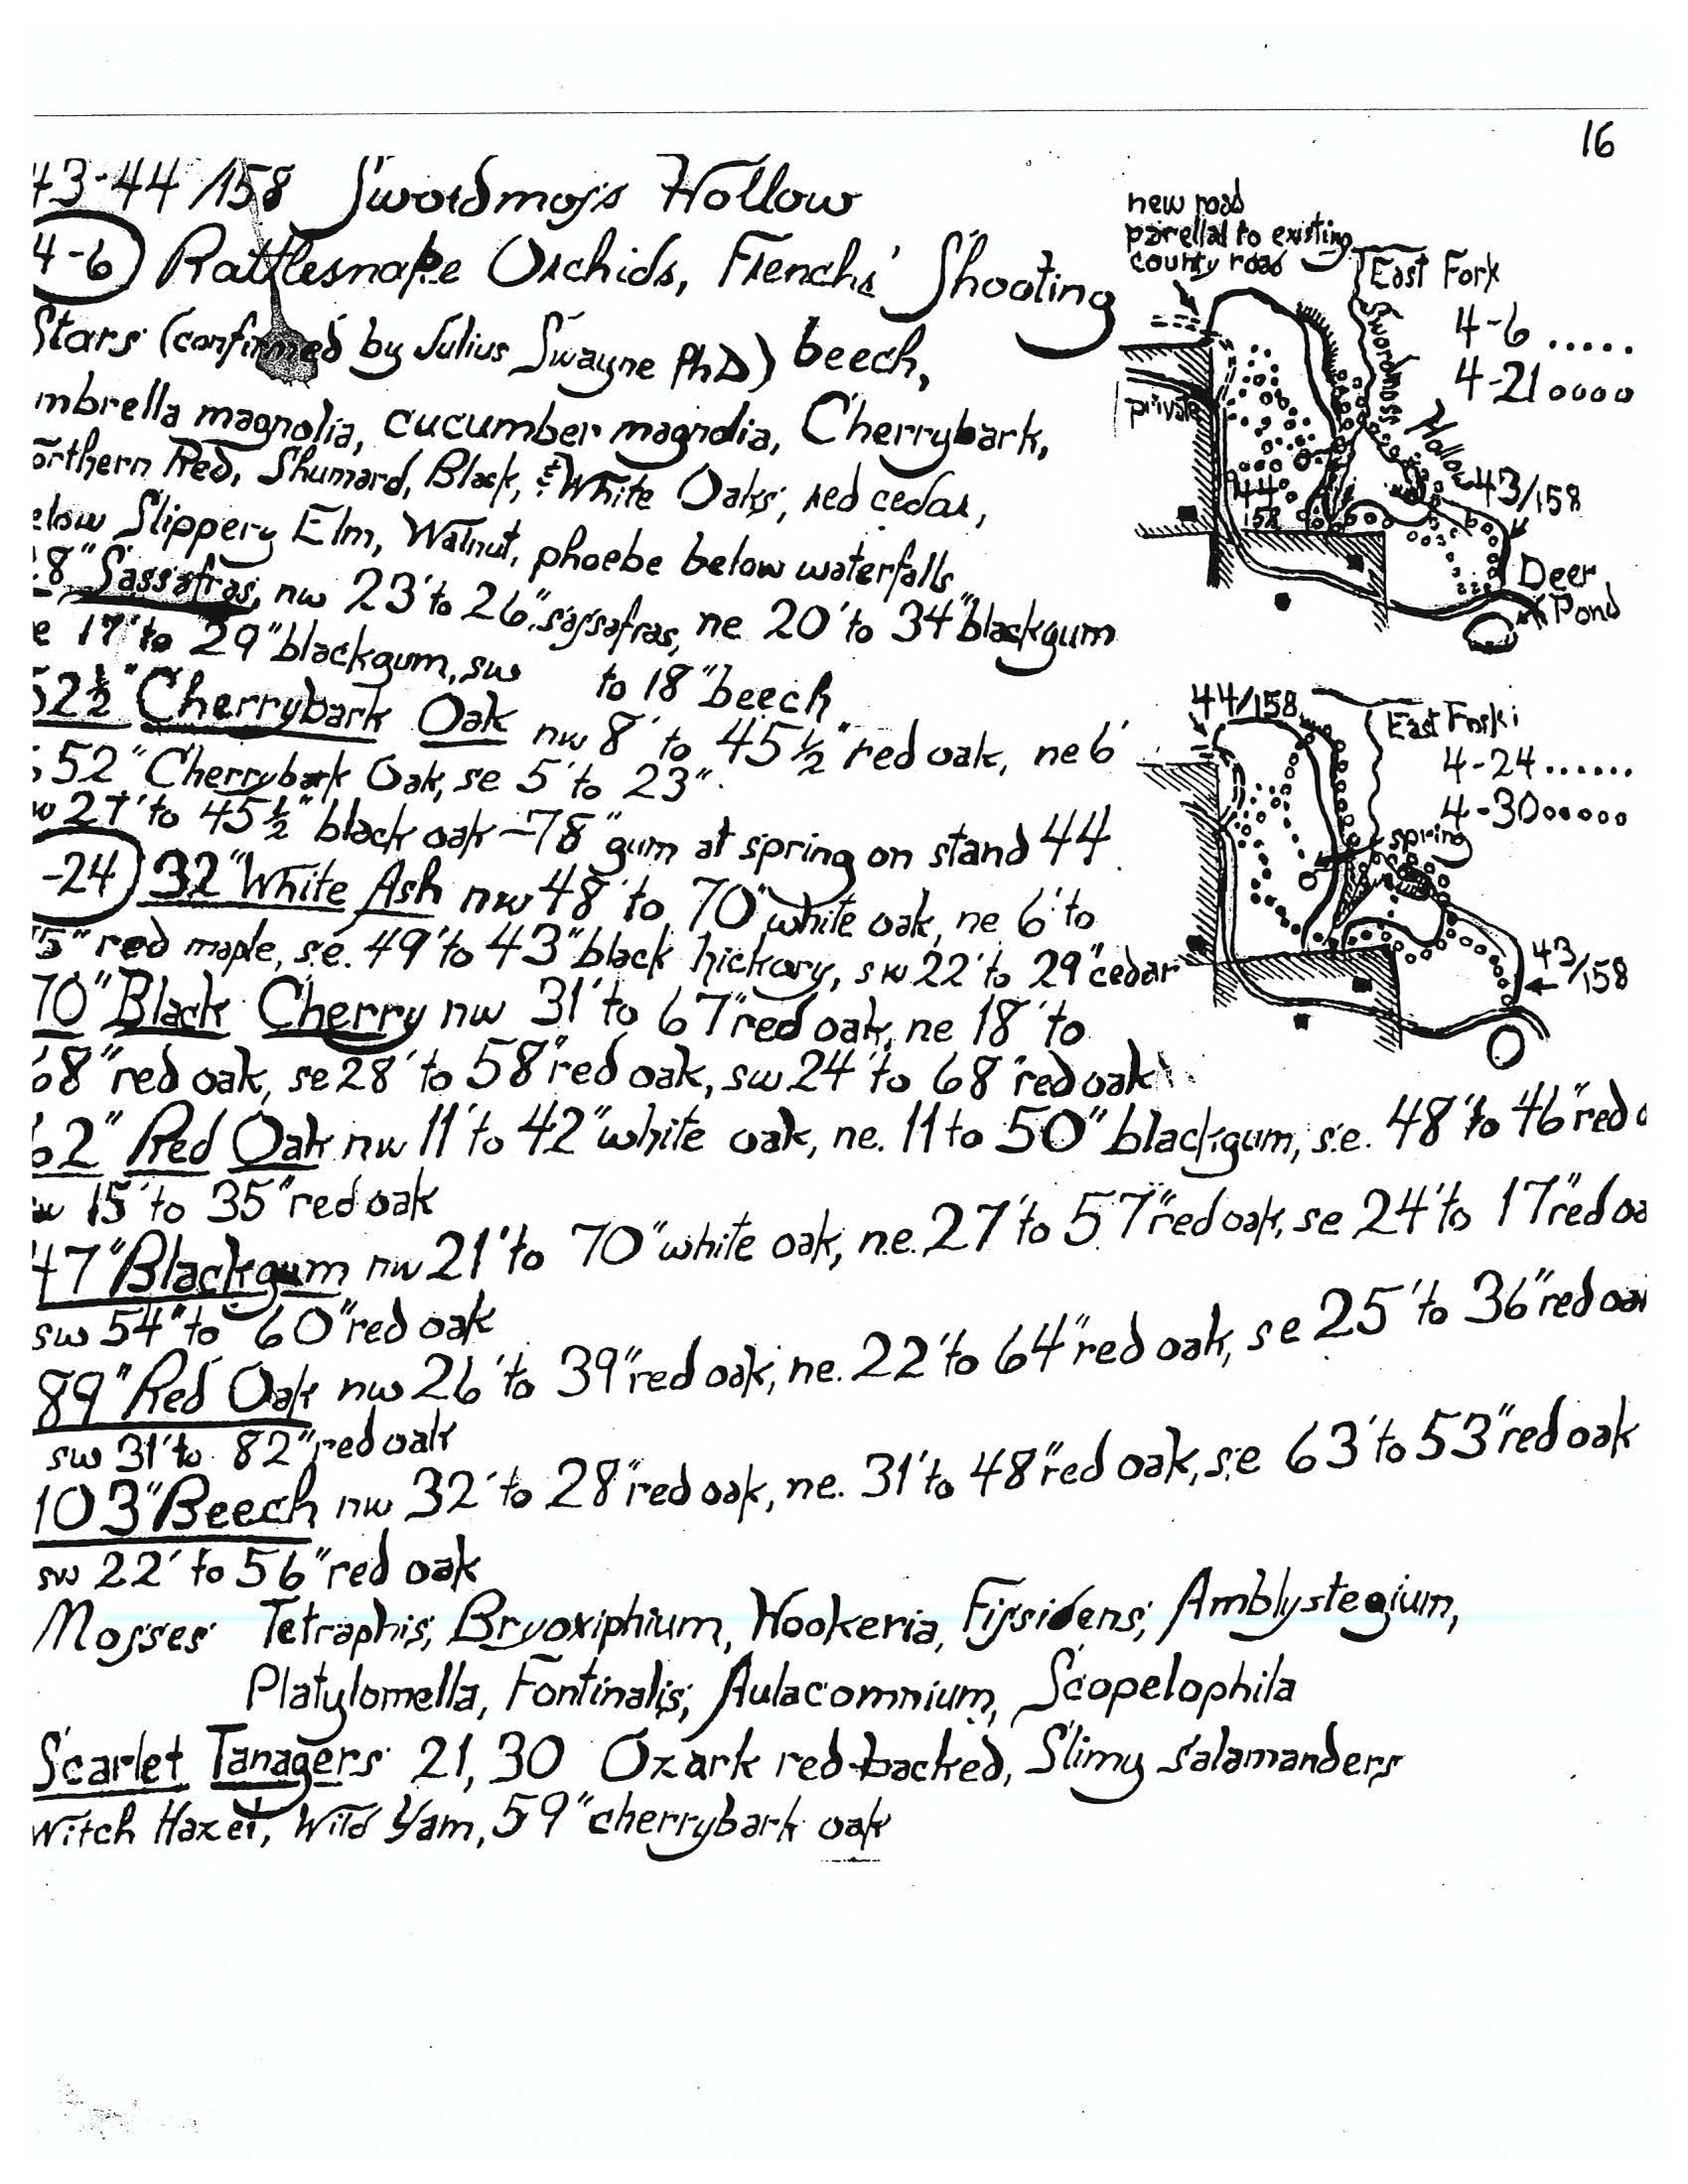 16
43-44/158 Swordmoss Hollow
4-6 Rattlesnake Orchids, Frenchs' Shooting
Stars (confirmed by Julius Swayne PhD) beech,
mbrella magnolia, cucumber magnolia, Cherrybark,
orthern Red, Shumard, Black, & White Oaks, red cedar,
elow Slippery Elm, Walnut, phoebe below waterfalls
8" Sassafras, nw 23' to 26" sassafras, ne 20' to 34" blackgum
e 17' to 29" blackgum, sw to 18" beech
52½" Cherrybark Oak nw 8' to 45½" red oak, ne 6'
52" Cherrybark Oak, se 5' to 23"
w 27' to 45½" black oak - 78" gum at spring on stand 44
-24 32" White Ash nw 48' to 70" white oak, ne 6' to
5" red maple, s.e. 49' to 43" black hickory, sw 22' to 29" cedar
70" Black Cherry nw 31' to 67" red oak, ne 18' to
68" red oak, se 28' to 58" red oak, sw 24' to 68" red oak
62" Red Oak nw 11' to 42" white oak, ne. 11 to 50" blackgum, s.e. 48' to 46" red o
w 15' to 35" red oak
47" Blackgum nw 21' to 70" white oak, n.e. 27' to 57" red oak, se 24' to 17" red oa
sw 54" to 60" red oak
89" Red Oak nw 26' to 39" red oak, ne. 22' to 64" red oak, se 25' to 36" red oa
sw 31' to 82" red oak
103" Beech nw 32' to 28" red oak, ne. 31' to 48" red oak, s.e 63' to 53" red oak
sw 22' to 56" red oak
Mosses Tetraphis, Bryoxiphium, Hookeria, Fissidens, Amblystegium,
Platylomella, Fontinalis, Aulacomnium, Scopelophila
Scarlet Tanagers 21, 30 Ozark red-backed, Slimy salamanders
Witch Hazel, Wild Yam, 59" cherrybark oak
new road
parellal to existing
county road
East Fork
4-6 .....
4-21 oooo
Swordmoss Hollow
private
44
158
43/158
Deer
Pond
44/158
East Fork
4-24 ......
4-30 oooooo
spring
43/158